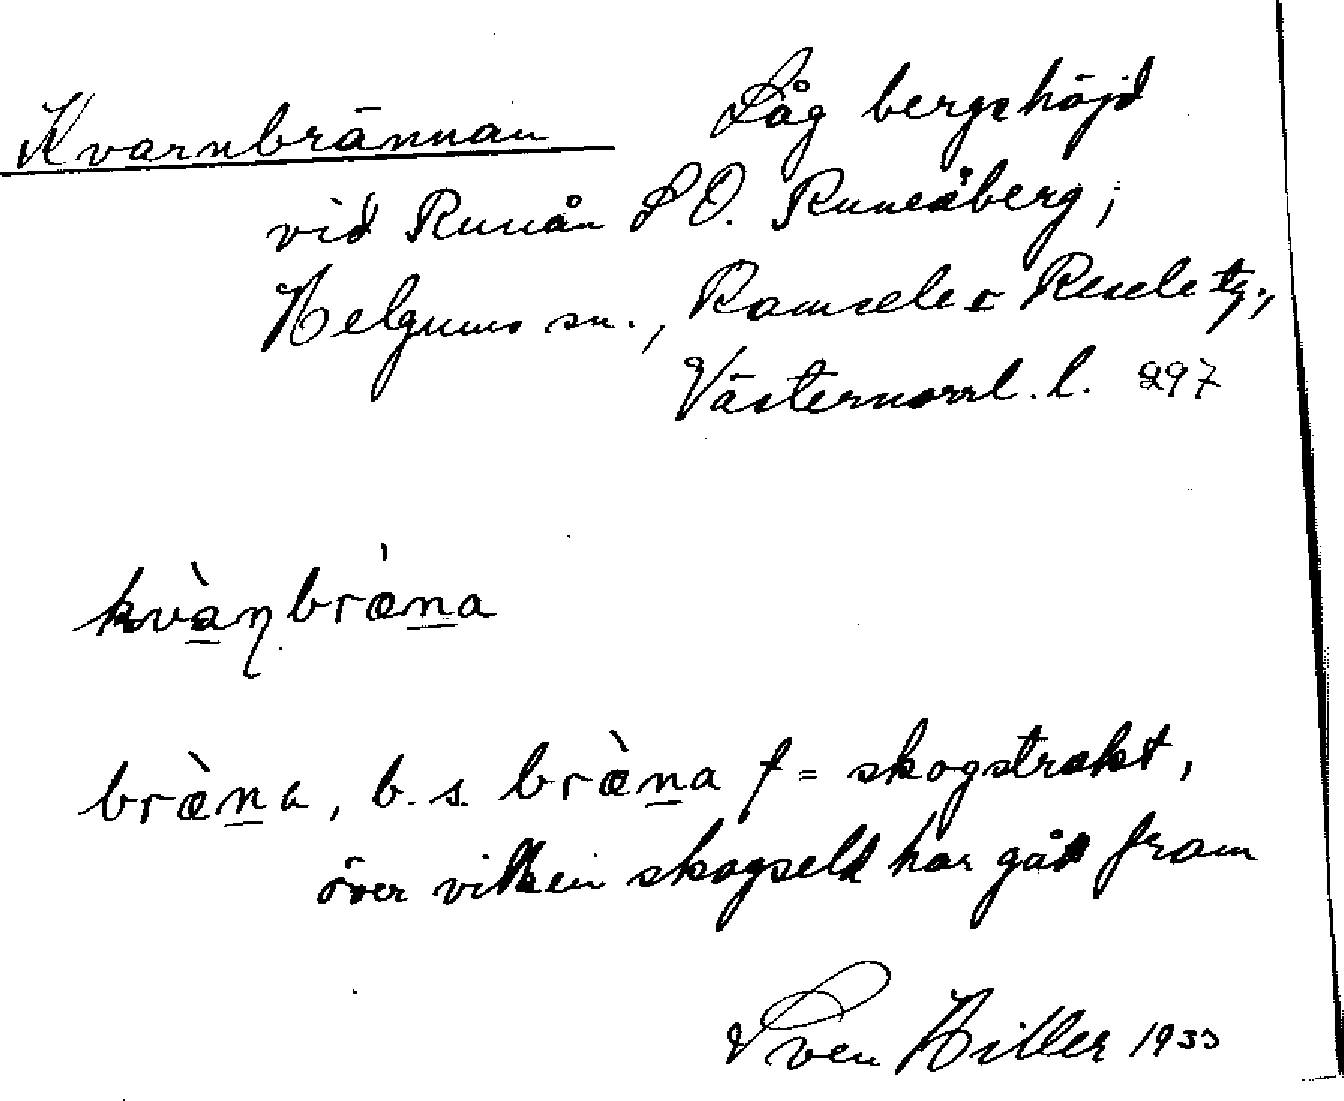 Kvarnbrännan Låg bergshöjd
vid Runån S O. Runeåberg;
Helgums sn., Ramsele o Resele tg.,
Västernorrl. l. 297
kvànbræ̀na
bræ̀na, b. s. bræ̀na f = skogstrakt,
över vilken skogseld har gått fram
Sven Hiller 1933